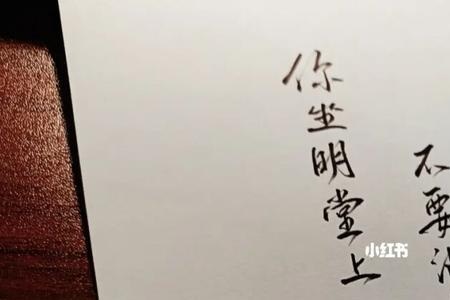 你坐明堂上
不要
小红书